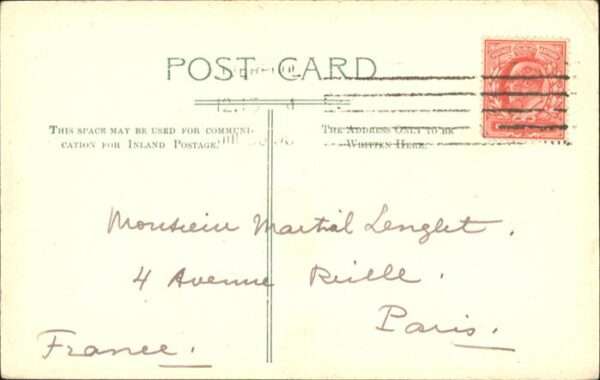 POST CARD
THIS SPACE MAY BE USED FOR COMMUNI-
CATION FOR INLAND POSTAGE.
THE ADDRESS ONLY TO BE
WRITTEN HERE.
Monsieur Martial Lenglet.
4 Avenue Reille.
Paris.
France.